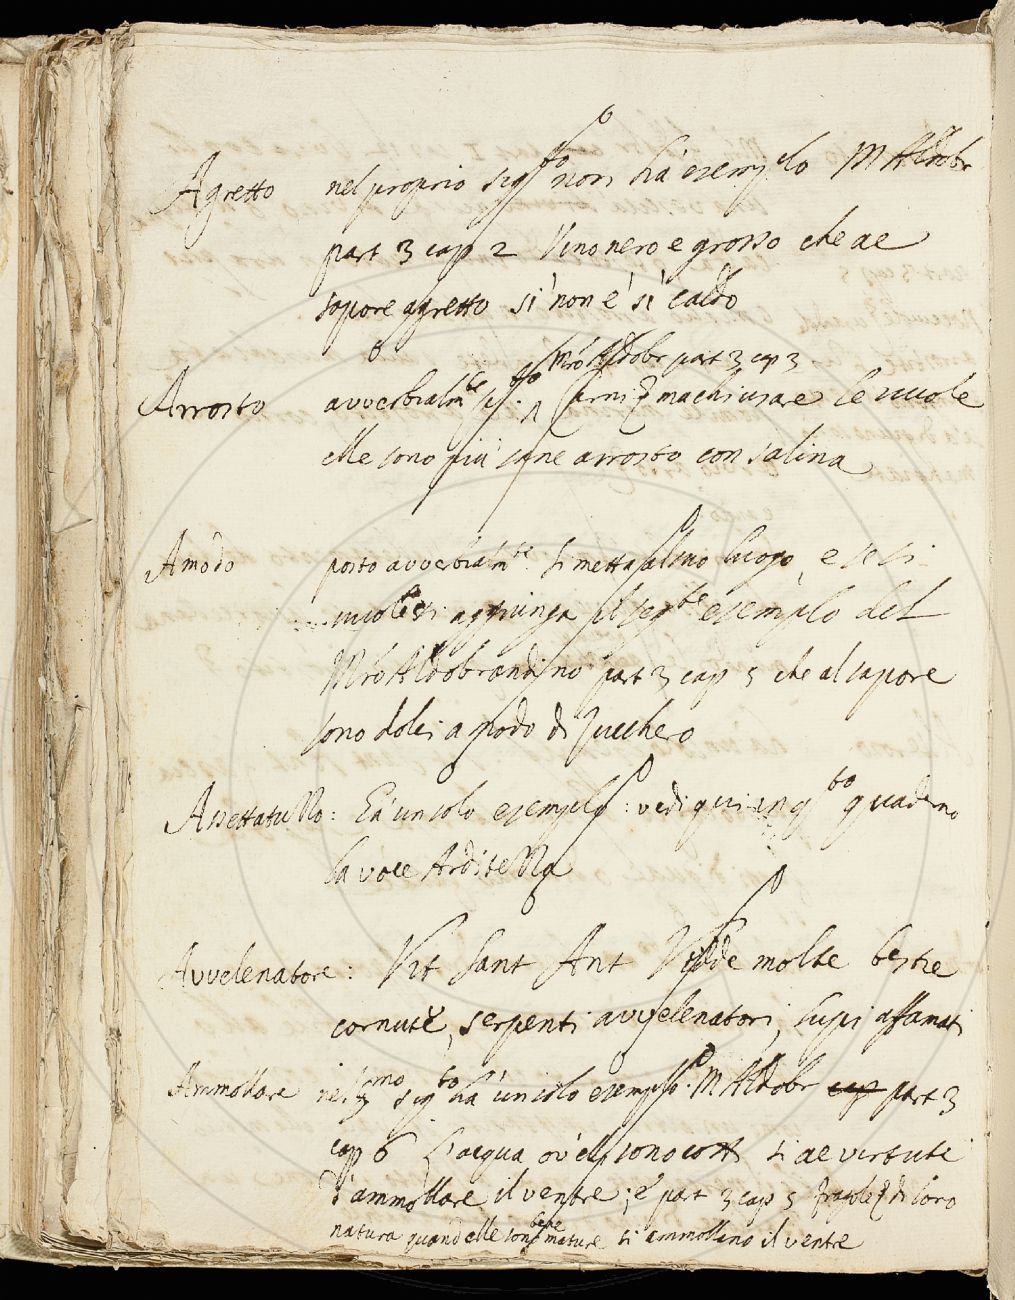 Agretto nel proprio sigto non há esemplo M Aldobr
part 3 cap 2 Vino nero e grosso che ae
sapore agretto si' non e' si' caldo
Mro Aldobr part 3 cap 3
Arrosto avverbialmte Carni machiusare le vuole
elle sono piu' sane arrosto con salina
Amodo posto avverbialmte: si metta al suo luogo, e se si
vuole si aggiunga il segte esemplo del
Mro Aldobrandino part 3 cap 5 che al sapore
sono dolci a modo di Zucchero
Assettatuzzo: Ha un solo esemplo: vedi qui in qto quaderno
la voce Arditezza
Avvelenatore: Vit Sant Ant Vidde molte bestie
cornute, serpenti avvelenatori, lupi affamati
Ammollare nel 3mo sigto ha un solo esemplo. M Aldobr cap part 3
cap 6 L'acqua ov'elli sono cotti si ae vertute
d'ammollare il ventre; e part 3 cap 5 fragole di loro
natura quand elle son bene mature si ammollano il ventre